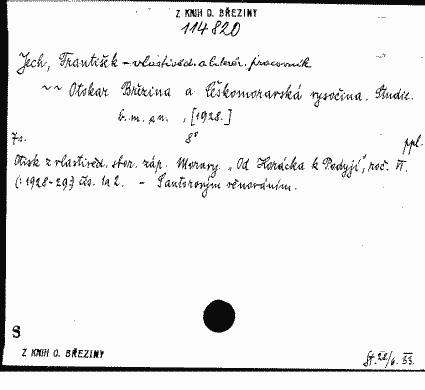 Z KNIH O. BŘEZINY
114820
Jech, František – vlastivěd. a literár. pracovník
~~ Otokar Březina a Českomoravská vysočina. Studie.
b. m. a n. , [1928.]
7 s. 8° ppl.
Otisk z vlastivěd. sbor. záp. Moravy „Od Horácka k Podyjí", roč. VI.
(: 1928-29:) čís. 1 a 2. – S autorovým věnováním.
S
Z KNIH O. BŘEZINY
22/6. 55.